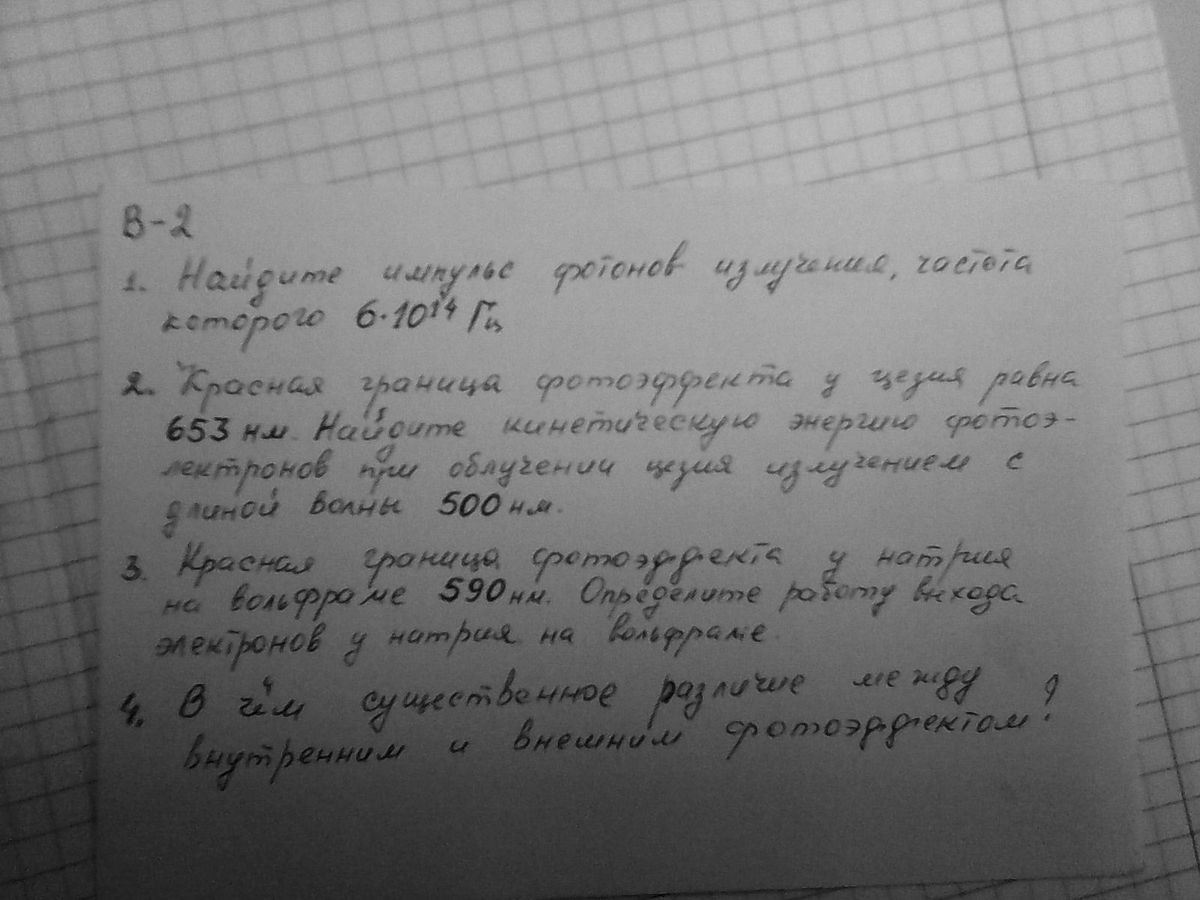 В-2
1. Найдите импульс фотонов излучения, частота
которого 6·10¹⁴ Гц
2. Красная граница фотоэффекта у цезия равна
653 нм. Найдите кинетическую энергию фотоэ-
лектронов при облучении цезия излучением с
длиной волны 500 нм.
3. Красная граница фотоэффекта у натрия
на вольфраме 590 нм. Определите работу выхода
электронов у натрия на вольфраме.
4. В чём существенное различие между
внутренним и внешним фотоэффектом?